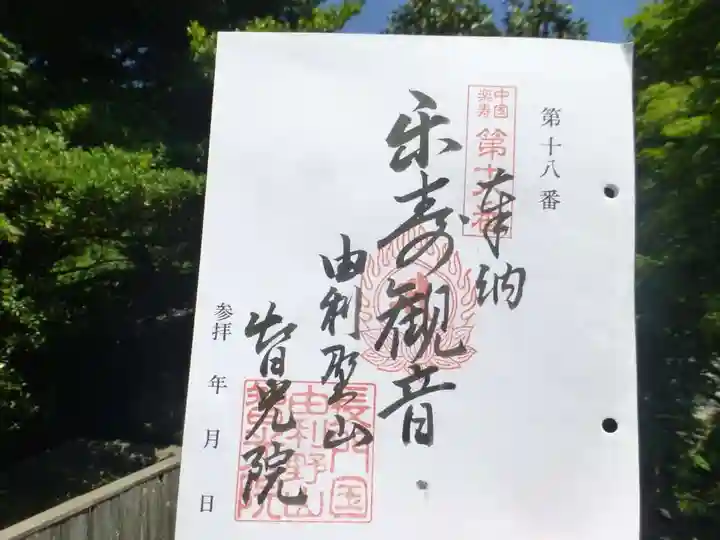 第十八番
中国
楽寿
第十八番
奉納
楽寿観音
由利聖山
光院
長門国
由利野山
参拝 年 月 日